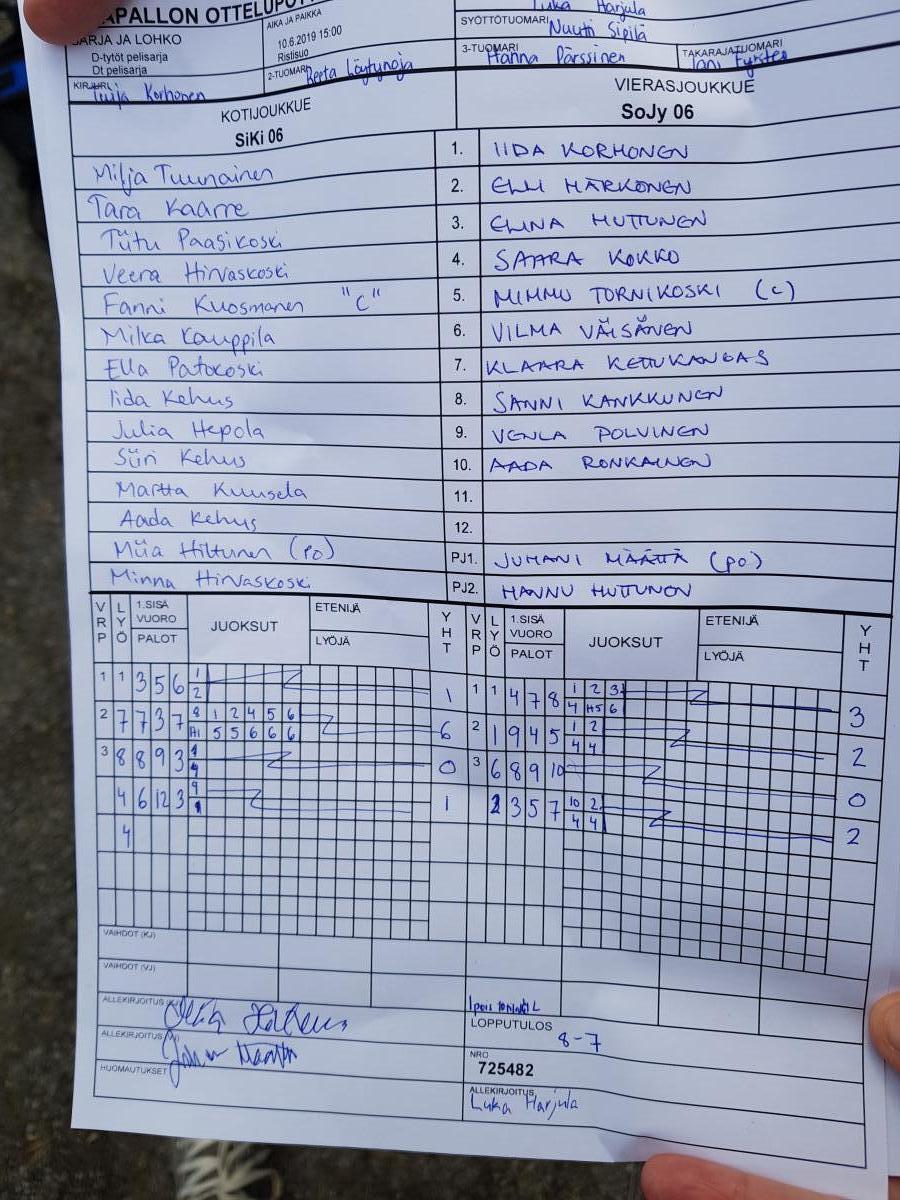 APALLON OTTELUPÖYT
SARJA JA LOHKO
D-tytöt pelisarja
Dt pelisarja
AIKA JA PAIKKA
10.6.2019 15:00
Ristisuo
Luka Harjula
SYÖTTÖTUOMARI Nuutti Sipilä
KIRJURI Tuija Korhonen
2-TUOMARI Berta Löytynoja
3-TUOMARI Hanna Pärssinen
TAKARAJATUOMARI
KOTIJOUKKUE
SiKi 06
VIERASJOUKKUE
SoJy 06
Milja Tuunainen 1. IIDA KORHONEN
Tara Kaarre 2. ELLI HÄRKÖNEN
Tiitu Paasikoski 3. ELINA HUTTUNEN
Veera Hirvaskoski 4. SAARA KOKKO
Fanni Kuosmanen "C" 5. MIMMU TORNIKOSKI (C)
Milka Kauppila 6. VILMA VÄISÄNEN
Ella Patokoski 7. KLAARA KETTUKANGAS
Iida Kehus 8. SANNI KANKKUNEN
Julia Hepola 9. VENLA POLVINEN
Siiri Kehus 10. AADA RONKAINEN
Martta Kuusela 11.
Aada Kehus 12.
Miia Hiltunen (po) PJ1. JUHANI MÄÄTTÄ (po)
Minna Hirvaskoski PJ2. HANNU HUTTUNEN
VRP LYÖ 1.SISÄ VUORO PALOT JUOKSUT ETENIJÄ LYÖJÄ YHT VRP LYÖ 1.SISÄ VUORO PALOT JUOKSUT ETENIJÄ LYÖJÄ YHT
1 1 3 5 6 1 1 1 1 4 7 8 1 2 3 3
2 4 H5 6
2 7 7 3 7 8 1 2 4 5 6 6 2 1 9 4 5 1 2 2
H1 5 5 6 6 6 4 4
3 8 8 9 3 0 3 6 8 9 10 0
4 6 12 3 9 1 2 3 5 7 10 2 2
1 4 4
4
VAIHDOT (KJ)
VAIHDOT (VJ)
ALLEKIRJOITUS
ALLEKIRJOITUS (VJ)
HUOMAUTUKSET
LOPPUTULOS
8-7
NRO
725482
ALLEKIRJOITUS
Luka Harjula